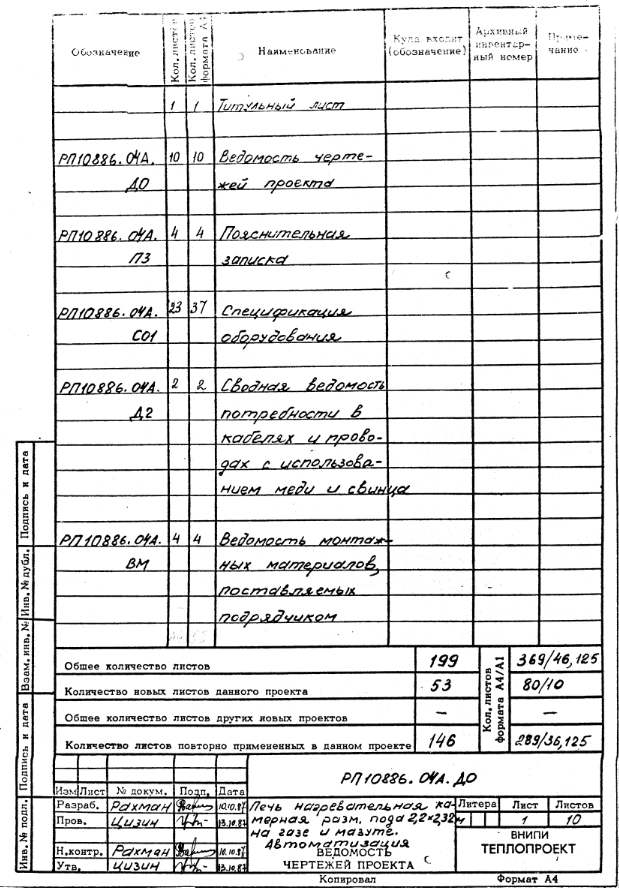 Обозначение
Кол. листов
Кол. листов формата А4
Наименование
Куда входит (обозначение)
Архивный инвентарный номер
Приме-
чание
1 1 Титульный лист
РП10886.04А. 10 10 Ведомость черте-
ДО жей проекта
РП10886.04А. 4 4 Пояснительная
ПЗ записка
РП10886.04А. 23 37 Спецификация
СО1 оборудования
РП10886.04А. 2 2 Сводная ведомость
Д2 потребности в
кабелях и прово-
дах с использова-
нием меди и свинца
РП10886.04А. 4 4 Ведомость монтаж-
ВМ ных материалов,
поставляемых
подрядчиком
Общее количество листов 199
Кол. листов формата А4/А1
369/46,125
Количество новых листов данного проекта 53 80/10
Общее количество листов других новых проектов — —
Количество листов повторно примененных в данном проекте 146 289/36,125
РП10886.04А.ДО
Изм Лист № докум. Подп. Дата
Разраб. Рахман 10.10.87
Пров. Цизин 13.10.87
Н.контр. Рахман 10.10.87
Утв. Цизин 13.10.87
Печь нагревательная ка-
мерная разм. пода 2,2×2,32м
на газе и мазуте.
Автоматизация
ВЕДОМОСТЬ
ЧЕРТЕЖЕЙ ПРОЕКТА
Литера Лист Листов
1 10
ВНИПИ
ТЕПЛОПРОЕКТ
Копировал Формат А4
Инв. № подл. Подпись и дата Взам. инв. № Инв. № дубл. Подпись и дата